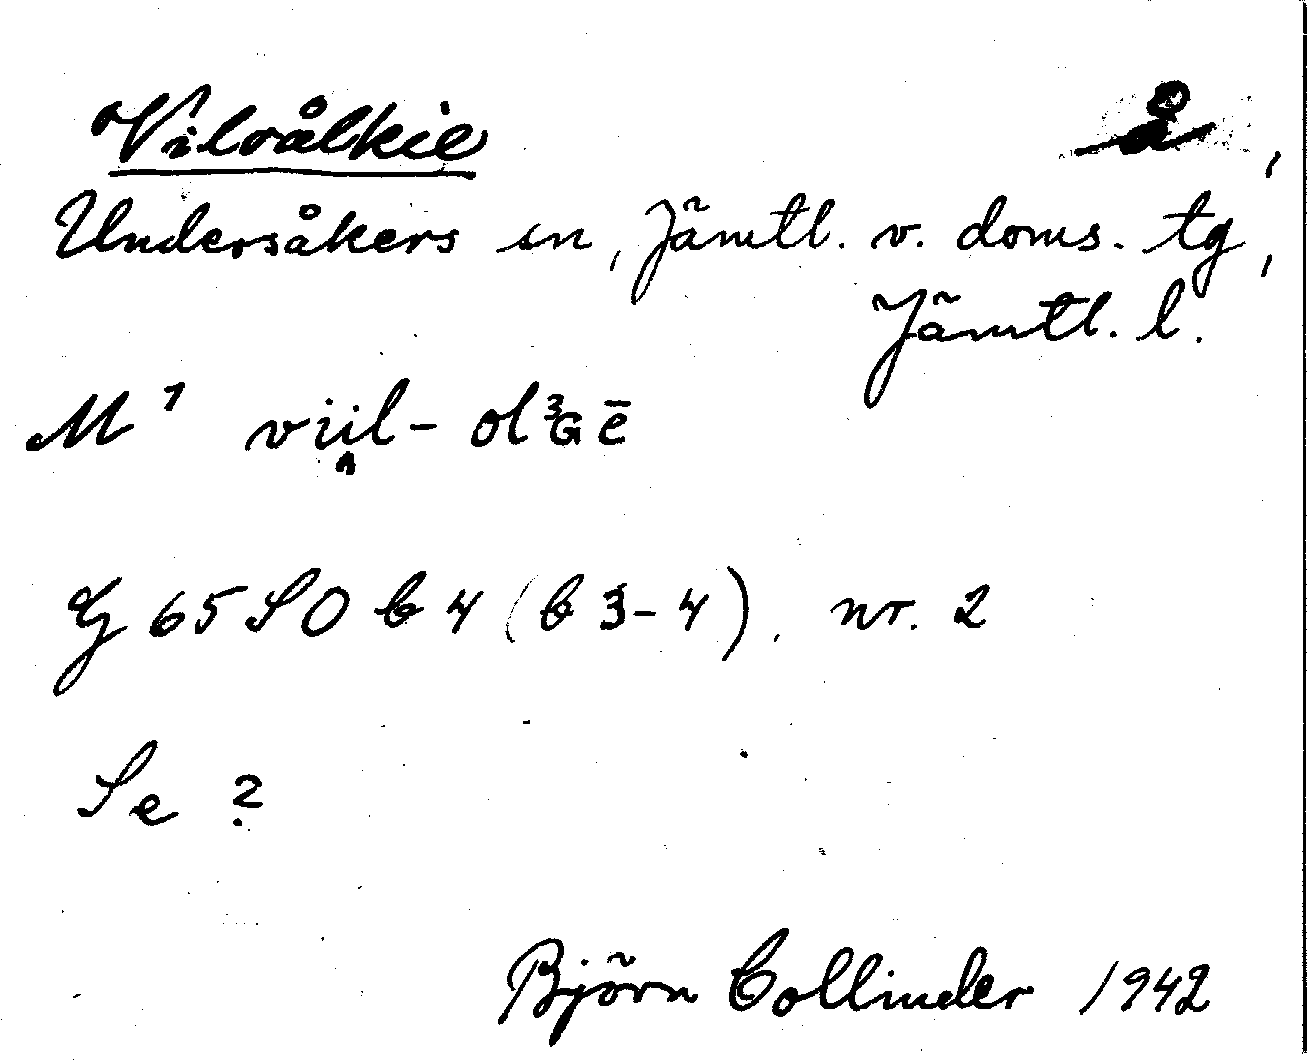 Vilvålkie
Undersåkers sn, Jämtl. v. doms. tg,
Jämtl. l.
M¹ viil-ol³ɢē
G 65 SO b 4 (b 3-4). nr. 2
Se ?
Björn Collinder 1942